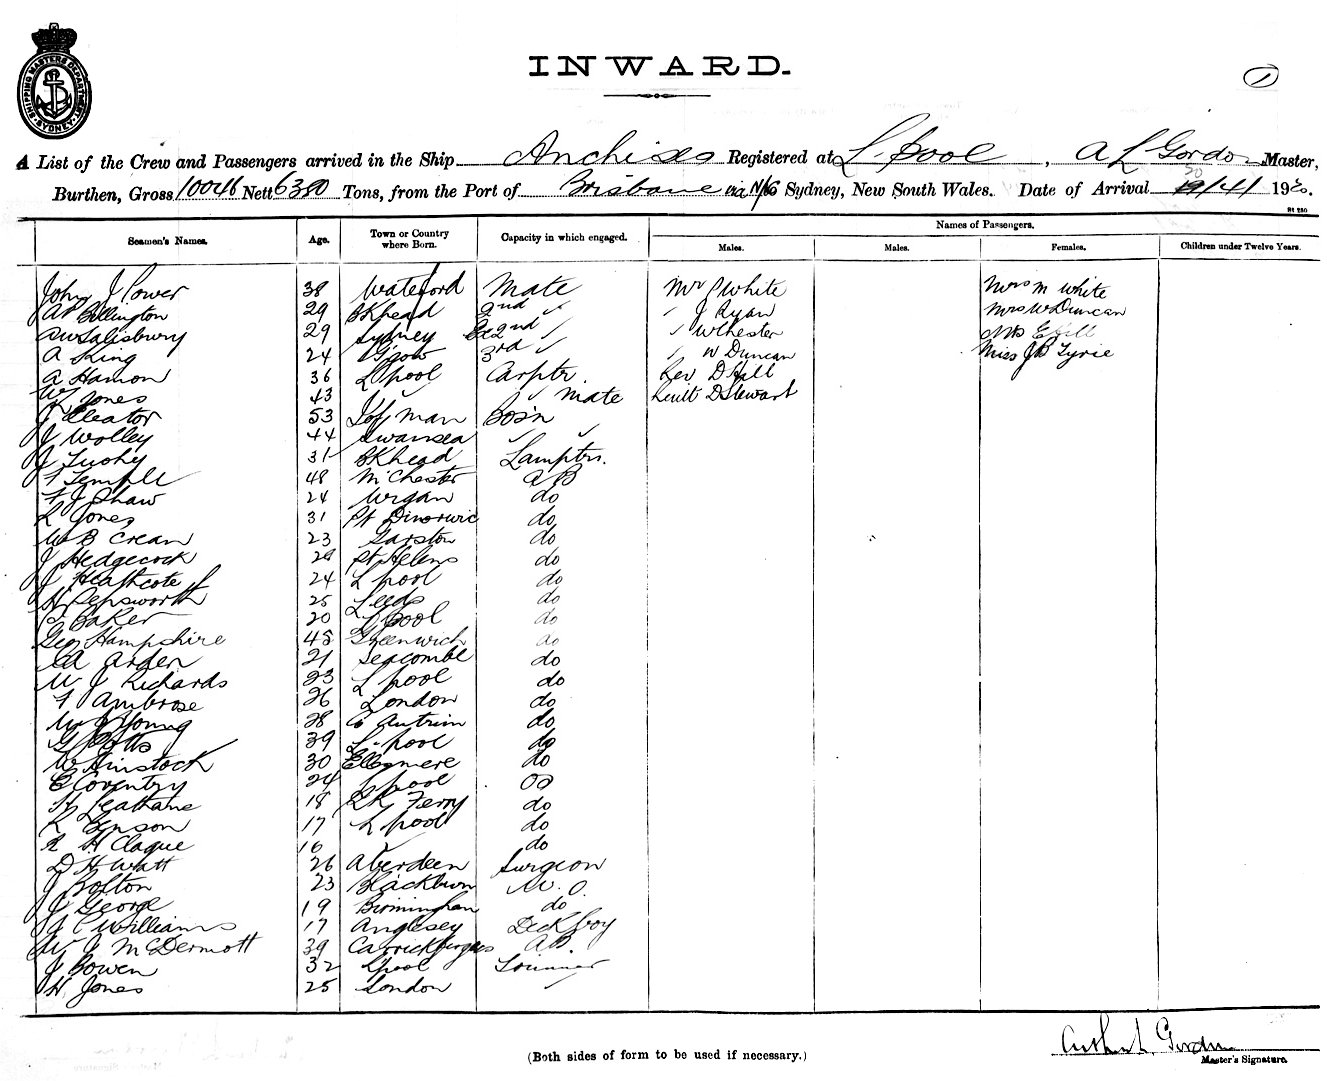 SHIPPING MASTERS DEPARTMENT SYDNEY
INWARD.
1
A List of the Crew and Passengers arrived in the Ship Anchises Registered at L.pool, A L Gordon Master,
Burthen, Gross 10046 Nett 6380 Tons, from the Port of Brisbane via N/C Sydney, New South Wales. Date of Arrival 20/4/ 19
Seamen's Names. Age. Town or Country where Born. Capacity in which engaged. Names of Passengers.
Males. Males. Females. Children under Twelve Years.
John J Power 38 Wateford Mate Mr J White Mrs M White
A Billington 29 BKhead 2nd " J Ryan Mrs W Duncan
SW Salisbury 29 Sydney Ex 2nd " " W Chester Mrs E Hill
A King 24 G'gow 3rd " " W Duncan Miss JB Tyrie
A Hamon 36 L pool Carptr Rev D Hill
W Jones 43 " " mate Lieutt D Stewart
J Cleator 53 I of Man Bos'n
J Wolley 44 Swansea " "
J Tuohy 31 BKhead Lamptr.
F Temple 48 M'Chester AB
F J Shaw 24 Wigan do
R Jones 31 Pt Dinorwic do
W B Crean 23 Garston do
J Hedgecock 28 St Helens do
J Heathcote 24 L pool do
H Pepsworth 25 Leeds do
P Baker 20 L pool do
Geo Hampshire 45 Greenwich do
A Arden 21 Seacombe do
W J Richards 23 L pool do
F Ambrose 26 London do
W J Young 28 Co Antrim do
G Potts 39 L.pool do
W Hinstock 30 Ellesmere do
E Coventry 24 L pool OS
H Leathane 18 Rk Ferry do
R Benson 17 L pool do
R H Clague 16 " do
D H Watt 26 Aberdeen Surgeon
J Bolton 23 Blackburn W. O.
J George 19 Birmingham do
J C Williams 17 Anglesey Deck boy
W J McDermott 39 Carrickfergus AB.
J Bowen 32 L pool Trimmer
H Jones 25 London "
Arthur L Gordon
Master's Signature.
(Both sides of form to be used if necessary.)